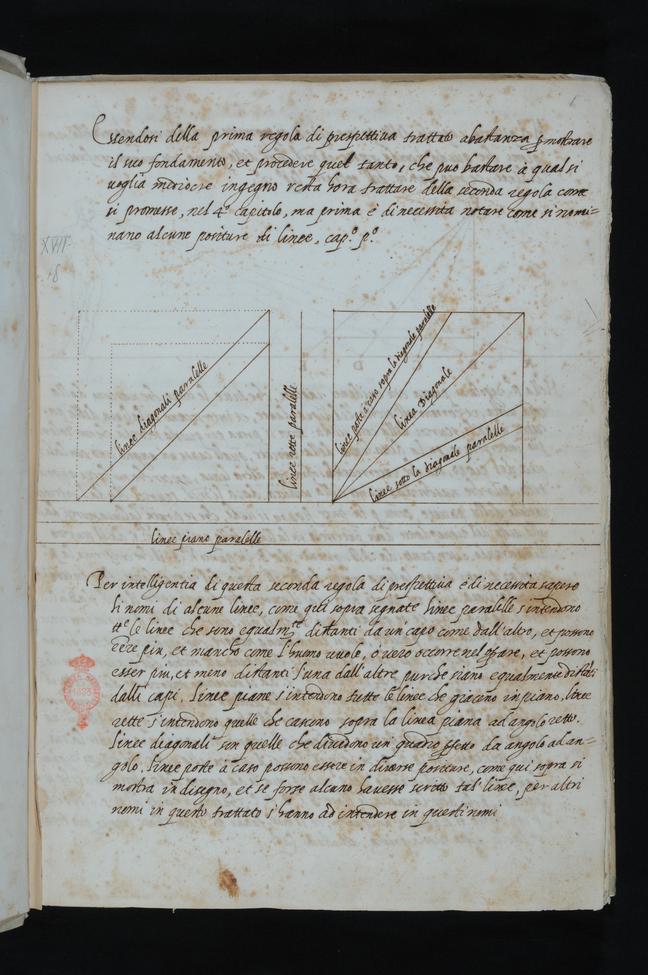 Essendosi della prima regola di prospettiua trattato abastanza p mostrare
il suo fondamento, et procedere quel tanto, che puo bastare à qual si
uoglia mediocre ingegno resta hora trattare della seconda regola come
si promesse, nel 4º capitolo, ma prima è di necessita notare come si nomi=
nano alcune positure di linee, cap.º p.º
XVIII
18
linee diagonali paralelle
linee rette paralelle
linee poste a caso sopra la diagonale paralelle
linea Diagonale
linee sotto la diagonale paralelle
linee piano paralelle
Per intelligentia di questa seconda regola di prospettiua è di necessita sapere
li nomi di alcune linee, come qui sopra segnate linee paralelle s'intendono
tte le linee che sono equalmte distanti da un capo come dall'altro, et possono
esere piu, et manco come l'huomo uuole, ò uero occorre nel opare, et possono
esser piu, et meno distanti l'una dall'altre purche siano equalmente distanti
dalli capi, linee piane s'intendono tutte le linee che giaceno in piano, linee
rette s'intendono quelle che cascono sopra la linea piana ad angolo retto.
linee diagonali son quelle che diuidono un quadro pfetto da angolo ad an=
golo, linee poste à caso possono essere in diuerse positure, come qui sopra si
mostra in disegno, et se forse alcuno hauesse scritto tal' linee, per altri
nomi in questo trattato s'hanno ad intendere in questi nomi